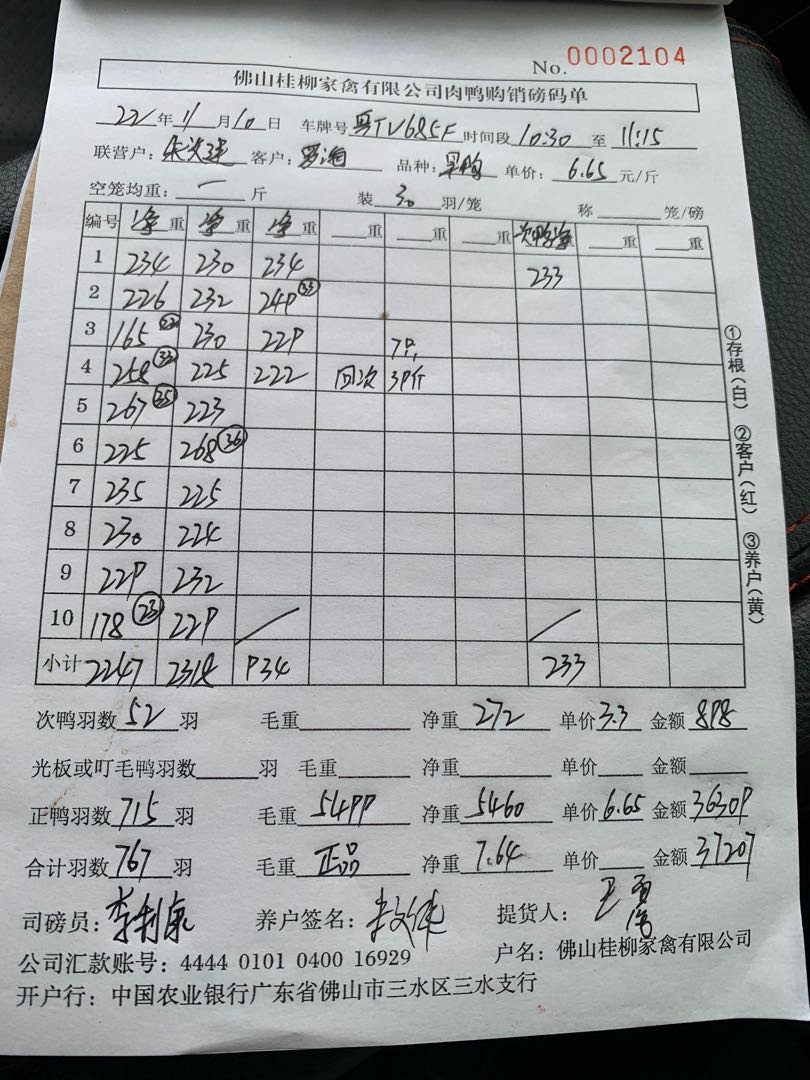 No. 0002104
佛山桂柳家禽有限公司肉鸭购销磅码单
22年 11月 10日 车牌号 粤TV685F 时间段 10:30 至 11:15
联营户: 客户: 罗海 品种: 单价: 6.65 元/斤
空笼均重: 一 斤 装 30 羽/笼 称 笼/磅
编号 净重 净重 净重 重 重 重 次鸭净重 重 重
1 234 230 234 233
2 226 232 249 (33)
3 165 (22) 230 229 7只,
4 258 (33) 225 222 回次 39斤
5 267 (35) 223
6 225 268 (36)
7 235 225
8 230 224
9 229 232
10 178 (23) 229 / /
小计 2247 2318 934 233
次鸭羽数 52 羽 毛重 净重 272 单价 3.3 金额 898
光板或叮毛鸭羽数 羽 毛重 净重 单价 金额
正鸭羽数 715 羽 毛重 5499 净重 5460 单价 6.65 金额 36309
合计羽数 767 羽 毛重 正品 净重 7.64 单价 金额 37207
司磅员: 李利康 养户签名: 提货人:
公司汇款账号: 4444 0101 0400 16929 户名: 佛山桂柳家禽有限公司
开户行: 中国农业银行广东省佛山市三水区三水支行
①存根(白) ②客户(红) ③养户(黄)